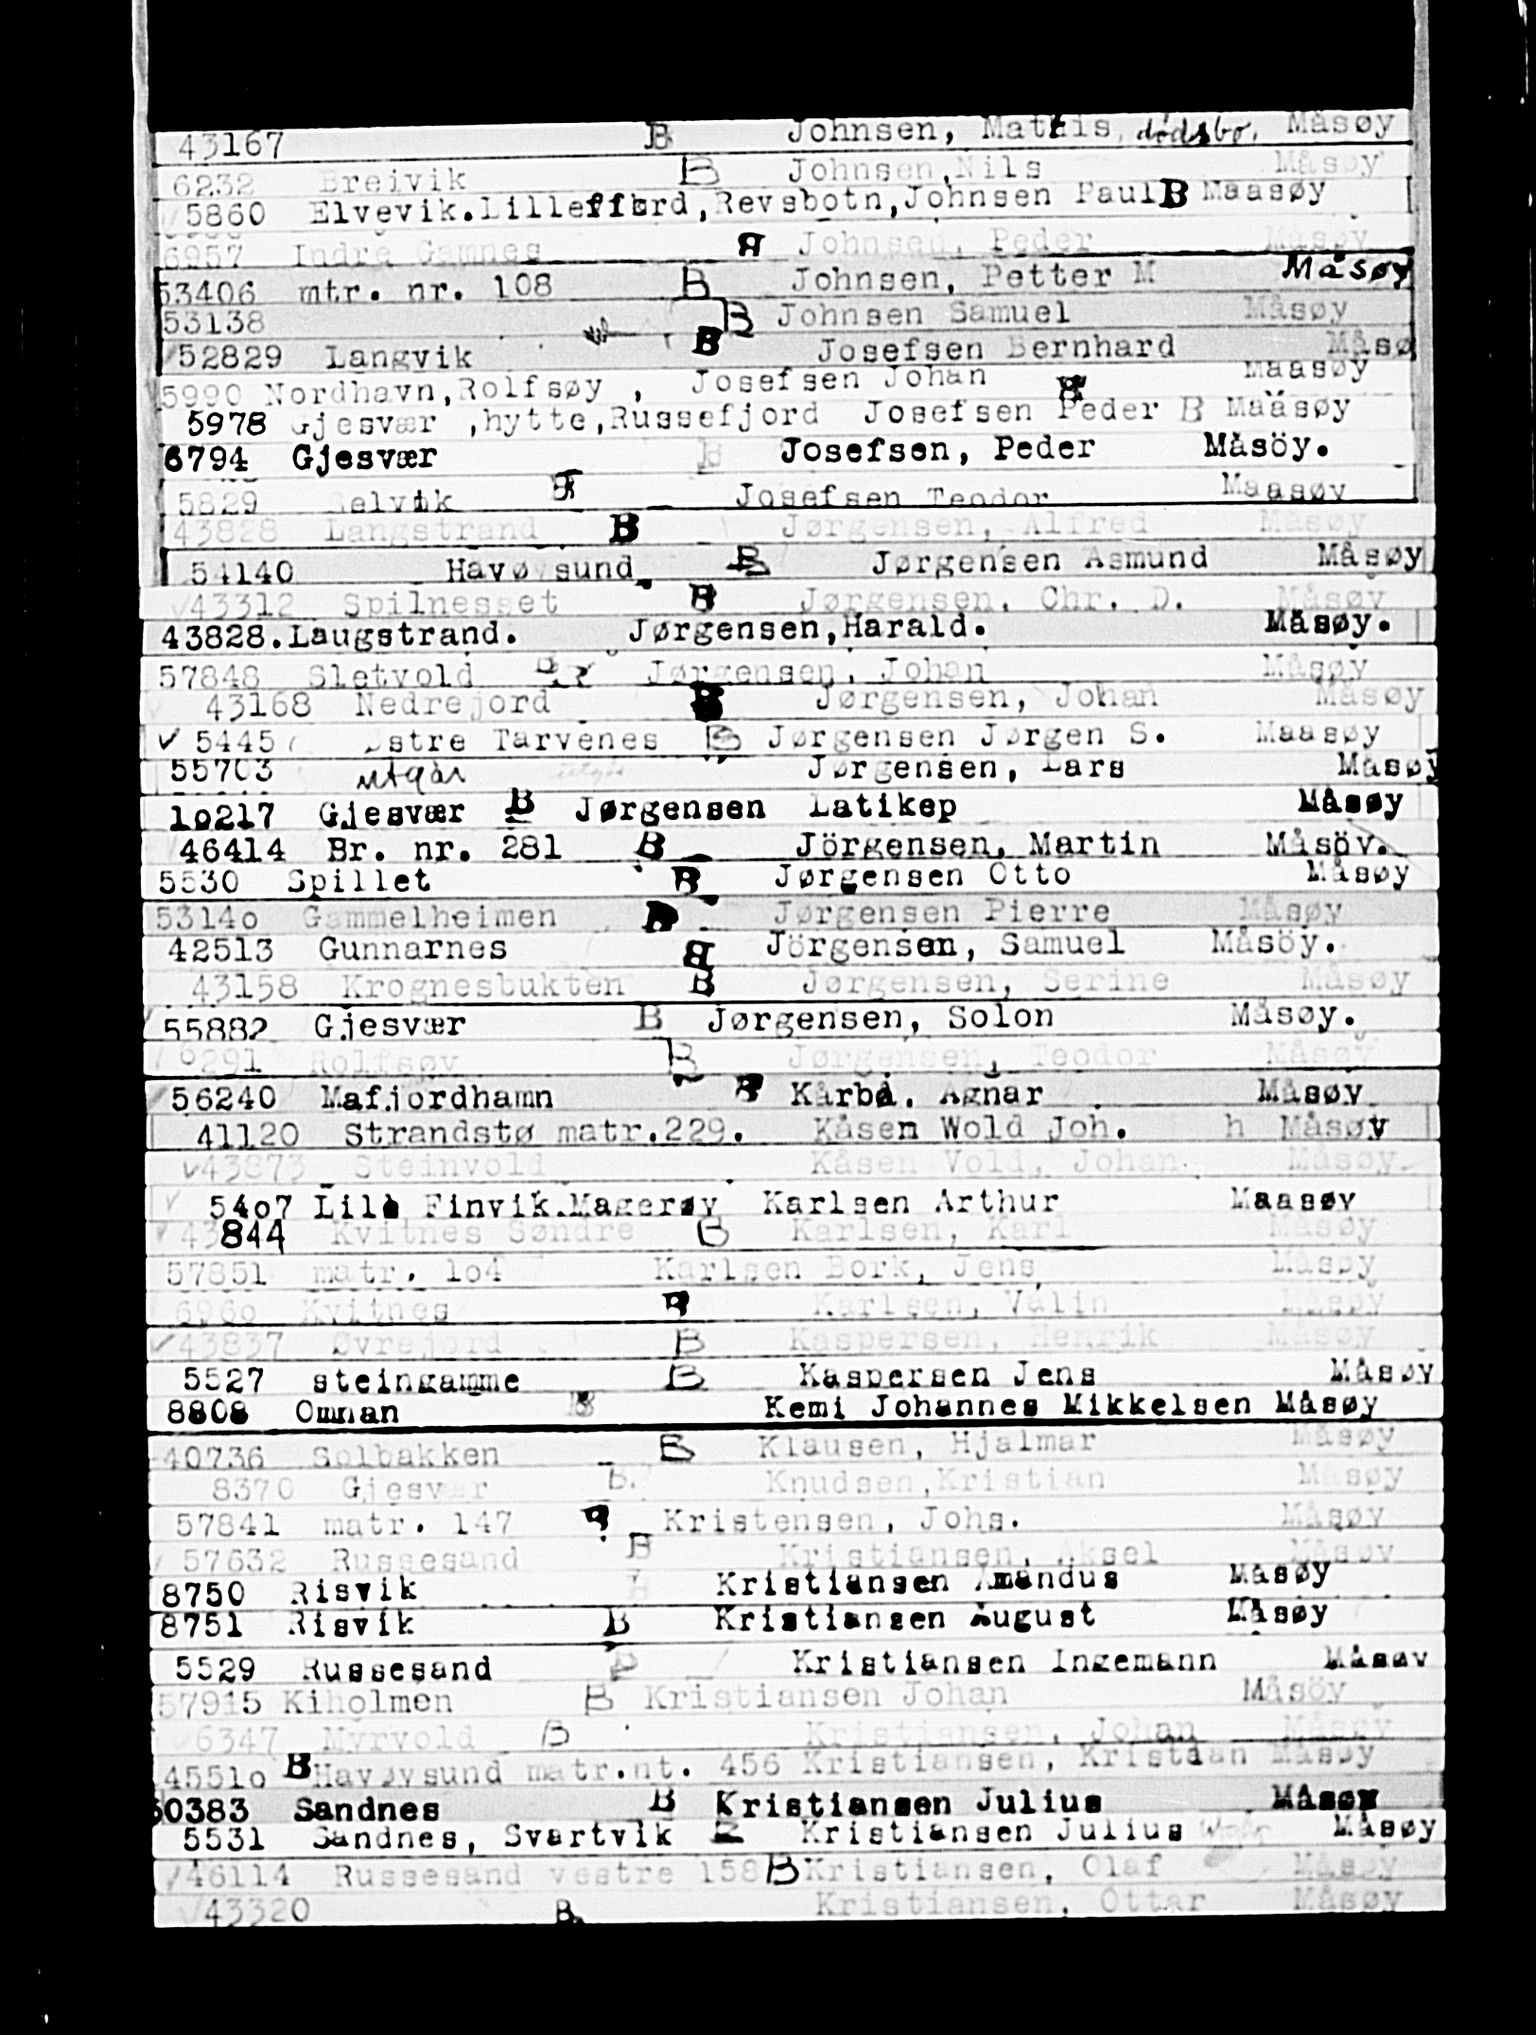 43167 B Johnsen, Mathis, dødsbo, Måsøy
6232 Breivik B Johnsen, Nils Måsøy
5860 Elvevik.Lillefford,Revsbotn,Johnsen Paul B Maasøy
6957 Indre Gamnes B Johnsen, Peder Måsøy
53406 mtr. nr. 108 B Johnsen, Petter M Måsøy
53138 B Johnsen Samuel Måsøy
52829 Langvik B Josefsen Bernhard Måsø
5990 Nordhavn,Rolfsøy , Josefsen Johan B Maasøy
5978 Gjesvær ,hytte,Russefjord Josefsen Peder B Maasøy
6794 Gjesvær B Josefsen, Peder Måsöy.
5829 Selvik Josefsen Teodor Maasøy
43828 Langstrand B Jørgensen, Alfred Måsøy
54140 Havøysund B Jørgensen Asmund Måsøy
43312 Spilnesset B Jørgensen, Chr. D. Måsøy
43828.Laugstrand. Jørgensen,Harald. Måsøy.
57848 Sletvold B Jørgensen, Johan Måsøy
43168 Nedrejord B Jørgensen, Johan Måsøy
✓ 5445 Østre Tarvenes B Jørgensen Jørgen S. Maasøy
55703 utgår Jørgensen, Lars Måsøy
10217 Gjesvær B Jørgensen Latikep Måsøy
46414 Br. nr. 281 B Jörgensen, Martin Måsöy.
5530 Spillet B Jørgensen Otto Måsøy
5314o Gammelheimen B Jørgensen Pierre Måsøy
42513 Gunnarnes B Jörgensen, Samuel Måsöy.
43158 Krognesbukten B Jørgensen, Serine Måsøy
55882 Gjesvær B Jørgensen, Solon Måsøy.
6291 Rolfsøy B Jørgensen, Teodor Måsøy
56240 Mafjordhamn B Kårbø, Agnar Måsøy
41120 Strandstø matr.229. Kåsen Wold Joh. h Måsøy
✓43873 Steinvold Kåsen Vold, Johan Måsøy
✓ 54o7 Lille Finvik.Magerøy Karlsen Arthur Maasøy
✓ 43844 Kvitnes Søndre B Karlsen, Karl Måsøy
57851 matr. 1o4 Karlsen Bork, Jens Måsøy
696o Kvitnes B Karlsen, Valin Måsøy
✓43837 Øvrejord B Kaspersen, Henrik Måsøy
5527 steingamme B Kaspersen Jens Måsøy
8808 Omnan B Kemi Johannes Mikkelsen Måsøy
40736 Solbakken B Klausen, Hjalmar Måsøy
8370 Gjesvær B. Knudsen,Kristian Måsøy
57841 matr. 147 Kristensen, Johs. Måsøy
57632 Russesand B Kristiansen, Aksel Måsøy
8750 Risvik B Kristiansen Amandus Måsøy
8751 Risvik B Kristiansen August Måsøy
5529 Russesand B Kristiansen Ingemann Måsøy
57915 Kiholmen B Kristiansen Johan Måsöy
6347 Myrvold B Kristiansen, Johan Måsøy
4551o B Havøysund matr.nt. 456 Kristiansen, Kristian Måsøy
50383 Sandnes B Kristiansen Julius Måsøy
5531 Sandnes, Svartvik B Kristiansen Julius Måsøy
✓46114 Russesand vestre 158 B Kristiansen, Olaf Måsøy
✓43320 B. Kristiansen, Ottar Måsøy